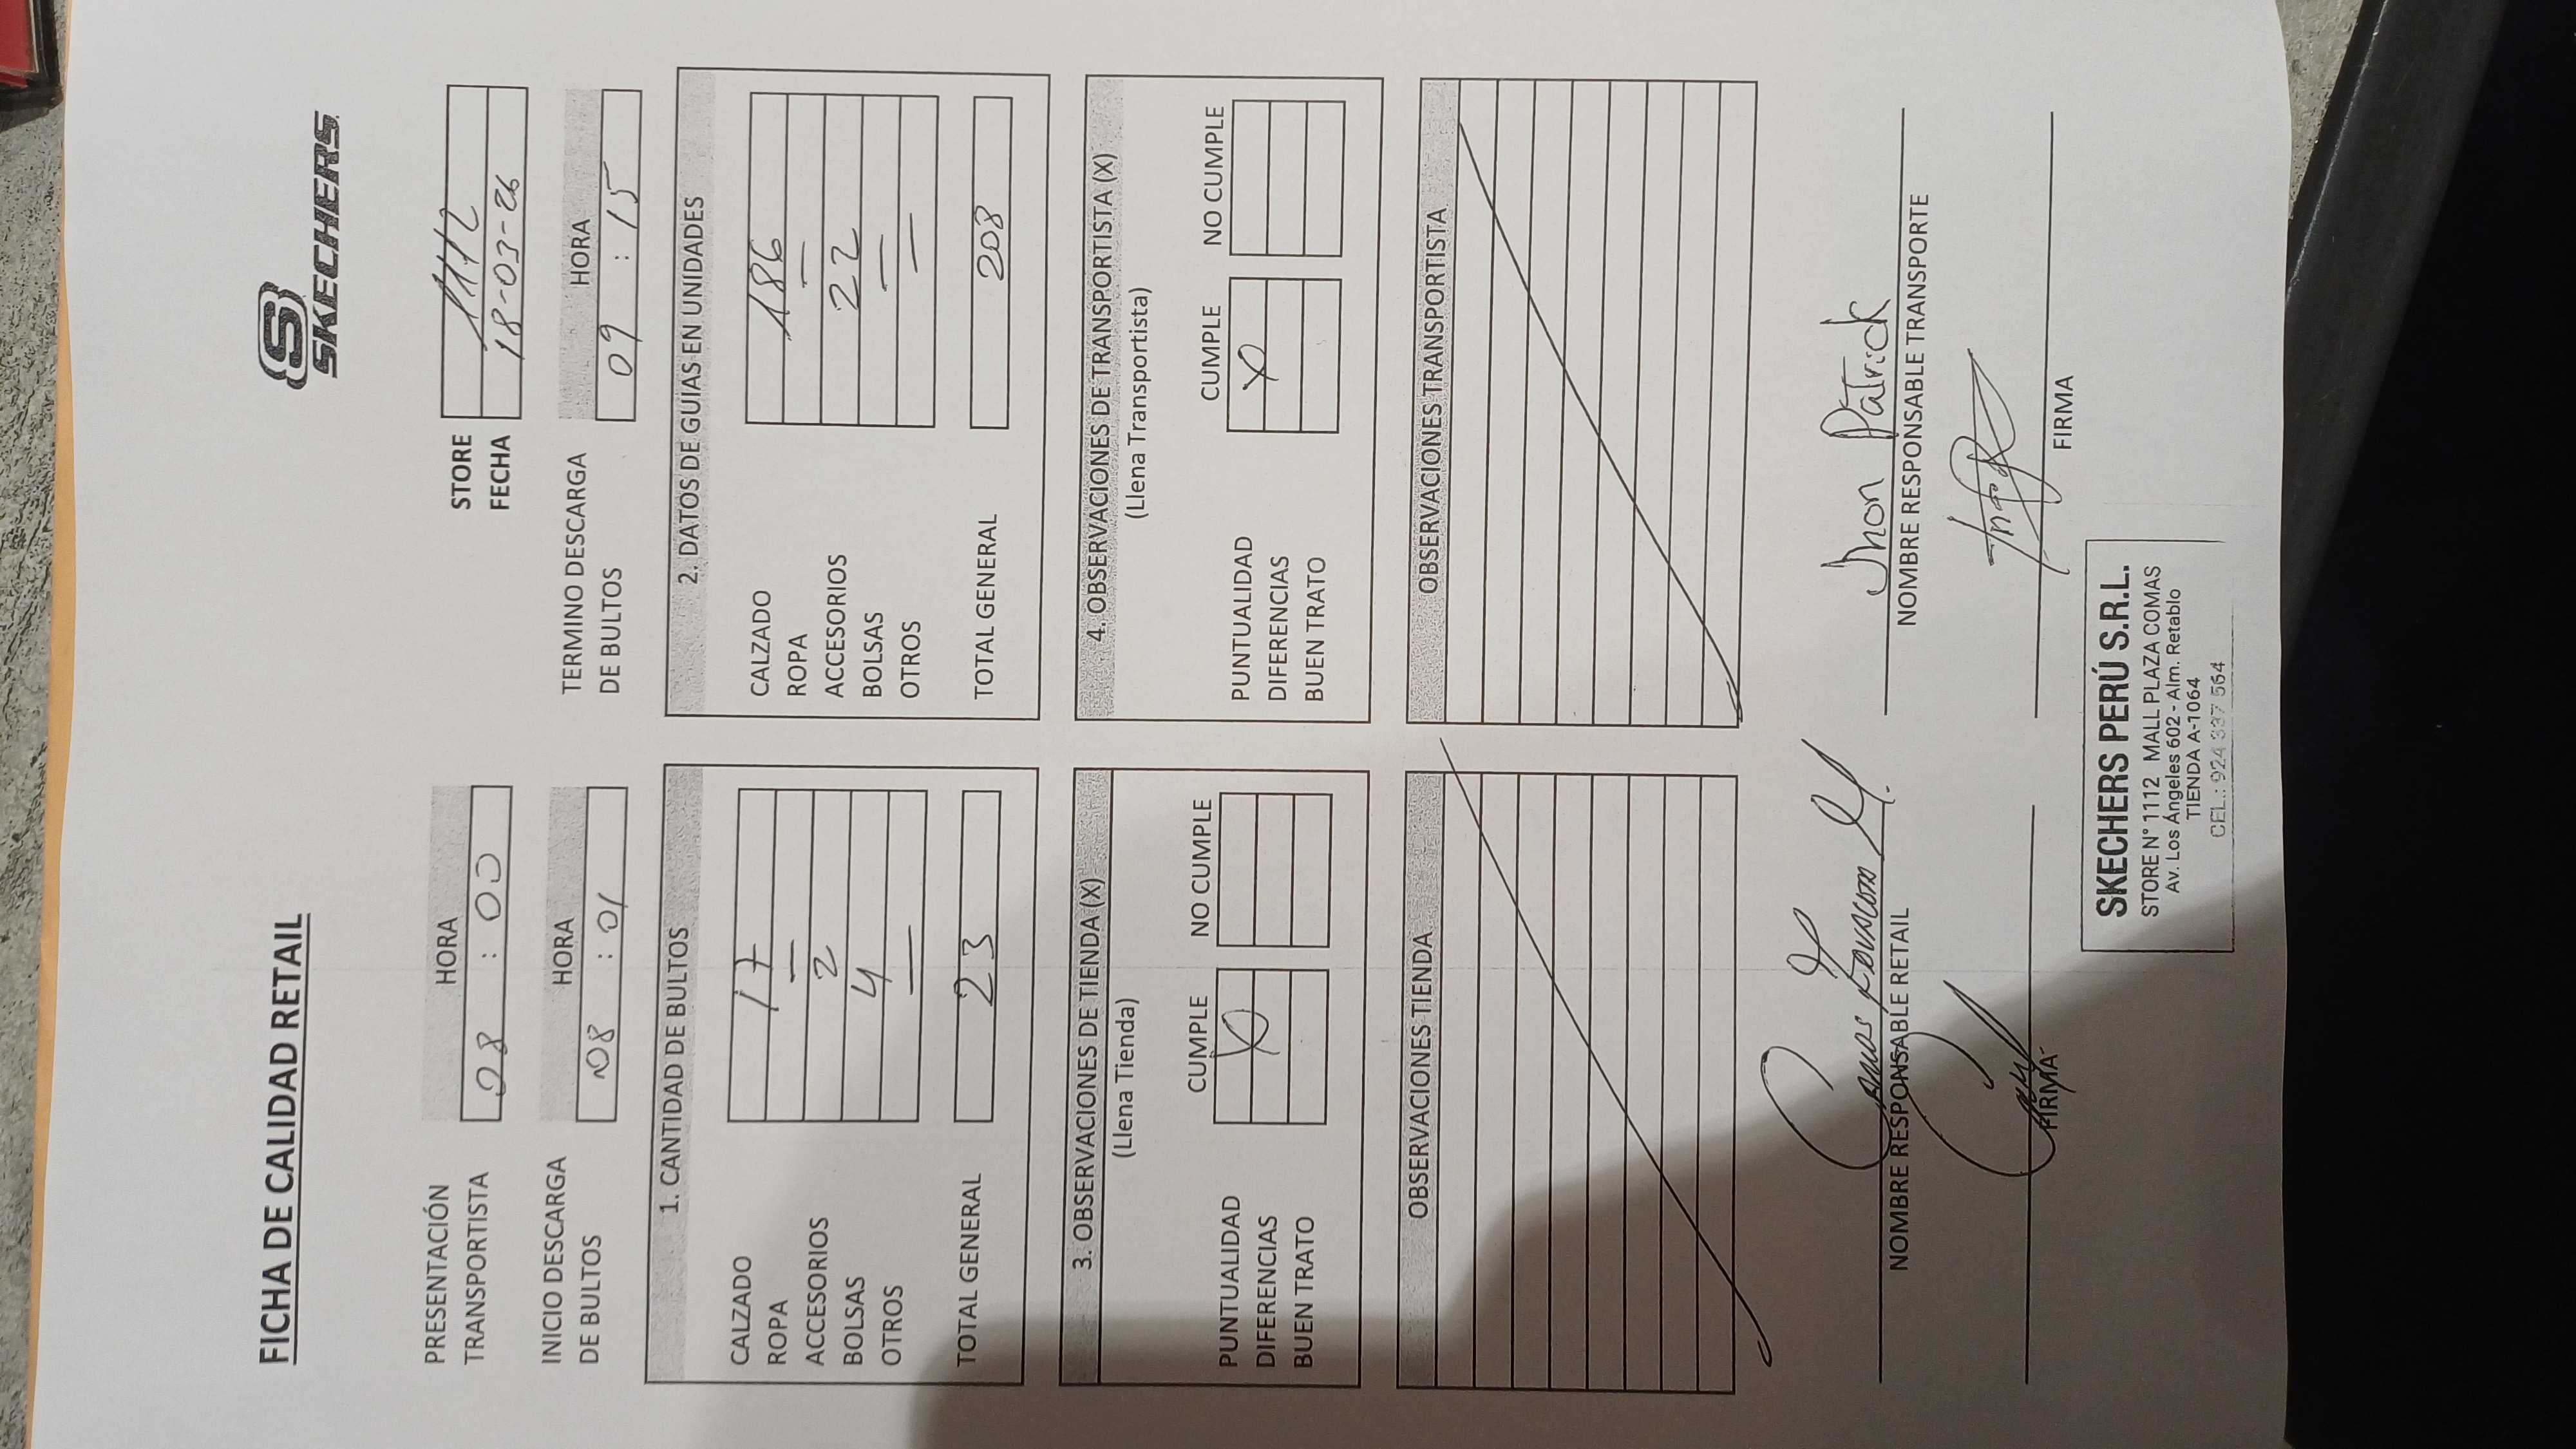 FICHA DE CALIDAD RETAIL
SKECHERS
STORE 1112
FECHA 18-03-26
PRESENTACIÓN TRANSPORTISTA
HORA
08 : 00
INICIO DESCARGA DE BULTOS
HORA
08 : 01
TERMINO DESCARGA DE BULTOS
HORA
09 : 15
1. CANTIDAD DE BULTOS
CALZADO 17
ROPA —
ACCESORIOS 2
BOLSAS 4
OTROS —
TOTAL GENERAL 23
2. DATOS DE GUIAS EN UNIDADES
CALZADO 186
ROPA —
ACCESORIOS 22
BOLSAS —
OTROS —
TOTAL GENERAL 208
3. OBSERVACIONES DE TIENDA (X)
(Llena Tienda)
CUMPLE NO CUMPLE
PUNTUALIDAD X
DIFERENCIAS
BUEN TRATO
4. OBSERVACIONES DE TRANSPORTISTA (X)
(Llena Transportista)
CUMPLE NO CUMPLE
PUNTUALIDAD X
DIFERENCIAS
BUEN TRATO
OBSERVACIONES TIENDA
OBSERVACIONES TRANSPORTISTA
NOMBRE RESPONSABLE RETAIL
FIRMA
Jhon Patrick
NOMBRE RESPONSABLE TRANSPORTE
FIRMA
SKECHERS PERÚ S.R.L.
STORE N° 1112 MALL PLAZA COMAS
Av. Los Ángeles 602 - Alm. Retablo
TIENDA A-1064
CEL.: 924 337 564